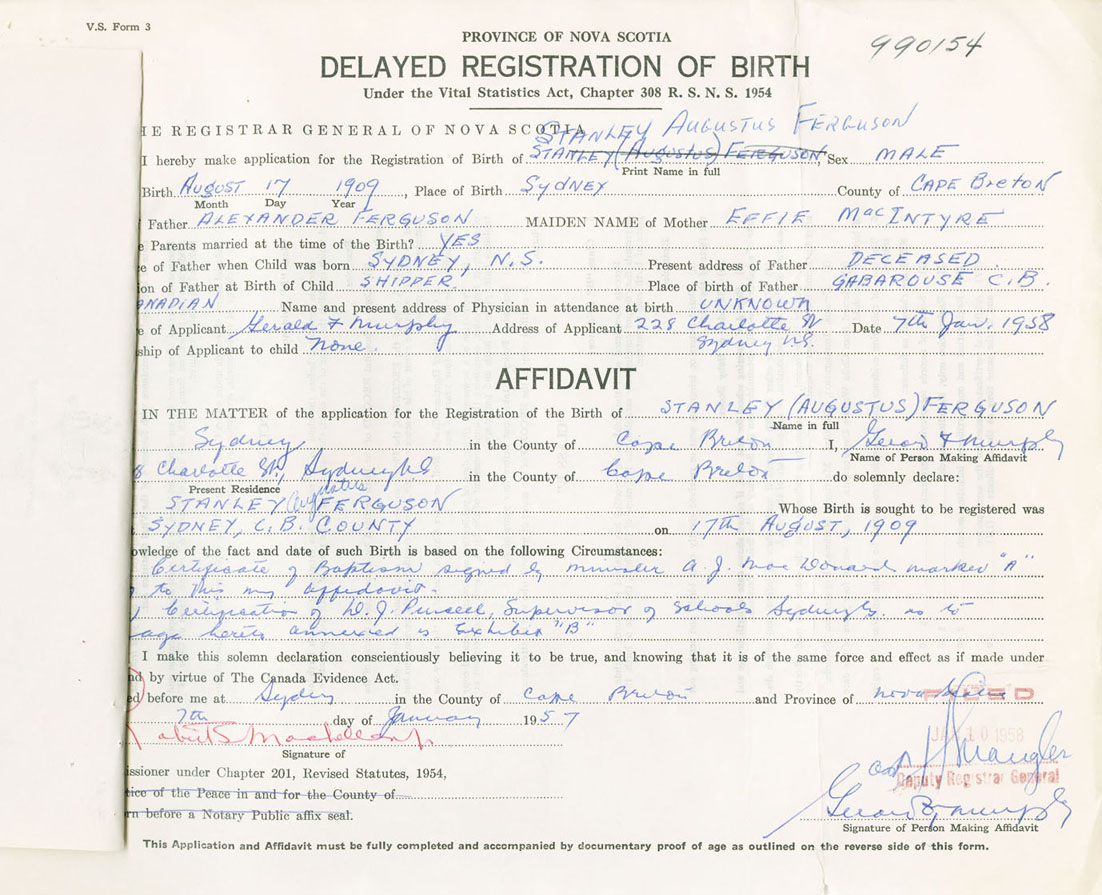 V.S. Form 3
PROVINCE OF NOVA SCOTIA
990154
DELAYED REGISTRATION OF BIRTH
Under the Vital Statistics Act, Chapter 308 R. S. N. S. 1954
HE REGISTRAR GENERAL OF NOVA SCOTIA
STANLEY AUGUSTUS FERGUSON
I hereby make application for the Registration of Birth of STANLEY (AUGUSTUS) FERGUSON, Sex MALE
Print Name in full
Birth AUGUST 17 1909, Place of Birth SYDNEY County of CAPE BRETON
Month Day Year
Father ALEXANDER FERGUSON MAIDEN NAME of Mother EFFIE MacINTYRE
e Parents married at the time of the Birth? YES
e of Father when Child was born SYDNEY, N.S. Present address of Father DECEASED
on of Father at Birth of Child SHIPPER Place of birth of Father GABAROUSE C.B.
ANADIAN Name and present address of Physician in attendance at birth UNKNOWN
e of Applicant Gerald F Murphy Address of Applicant 228 Charlotte St Date 7th Jan. 1958
Sydney N.S.
ship of Applicant to child None.
AFFIDAVIT
IN THE MATTER of the application for the Registration of the Birth of STANLEY (AUGUSTUS) FERGUSON
Name in full
Sydney in the County of Cape Breton I, Gerald F Murphy
Name of Person Making Affidavit
8 Charlotte St., Sydney NS in the County of Cape Breton do solemnly declare:
Present Residence
STANLEY Augustus FERGUSON Whose Birth is sought to be registered was
SYDNEY, C.B. COUNTY on 17th AUGUST, 1909
owledge of the fact and date of such Birth is based on the following Circumstances:
Certificate of Baptism signed by minister A. J. MacDonald marked "A"
to this my affidavit.
Certification of Supervisor of Schools Sydney as to
age hereto annexed is Exhibit "B"
I make this solemn declaration conscientiously believing it to be true, and knowing that it is of the same force and effect as if made under
nd by virtue of The Canada Evidence Act.
ed before me at Sydney in the County of Cape Breton and Province of Nova Scotia
FILED
7th day of January 1957
JAN 10 1958
Signature of
issioner under Chapter 201, Revised Statutes, 1954,
Deputy Registrar General
tice of the Peace in and for the County of
rn before a Notary Public affix seal.
Gerald F Murphy
Signature of Person Making Affidavit
This Application and Affidavit must be fully completed and accompanied by documentary proof of age as outlined on the reverse side of this form.